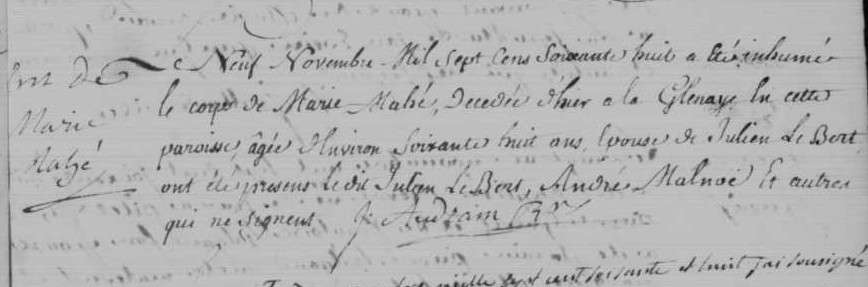 Ent de
Marie
Mahé
Le Neuf Novembre Mil Sept Cens Soixante huit a Eté inhumé
le corps de Marie Mahé, Decedée d'hier a la Glenaye En cette
paroisse, âgée d'Environ Soixante huit ans, Epouse de Julien Le Bert
ont été presens le dit Julien Le Bert, André Malnoë Et autres
qui ne signent J. Audrain
mille sept cent soixante et huit j'ai soussigné